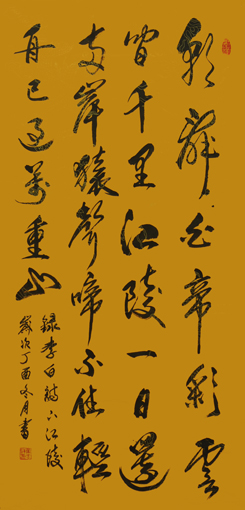 朝辭白帝彩雲
間千里江陵一日還
兩岸猿聲啼不住輕
舟已過萬重山
録李白詩下江陵
歲次丁酉冬月書